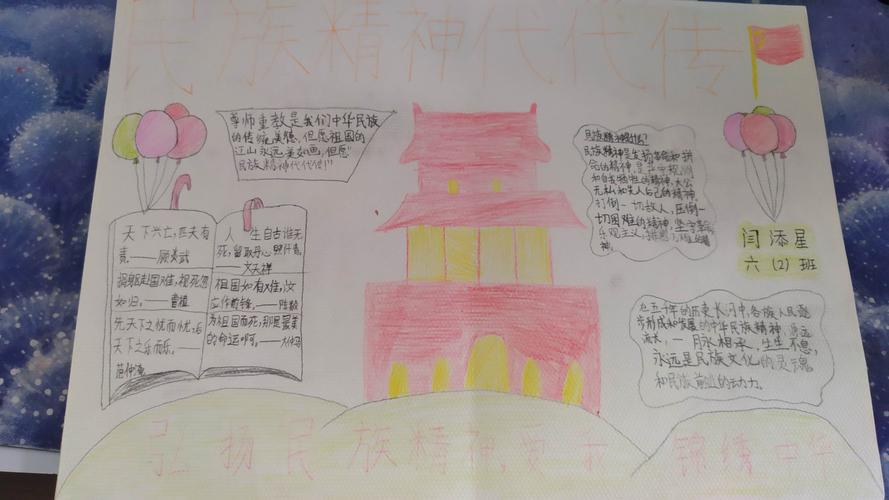 民族精神代代传
尊师重教是我们中华民族
的传统美德,但愿祖国的
江山永远美如画,但愿"
民族精神代代传!"
天下兴亡,匹夫有
责.——顾炎武
捐躯赴国难,视死忽
如归.——曹植
先天下之忧而忧,后
天下之乐而乐.——
范仲淹
人生自古谁无
死,留取丹心照汗青.
——文天祥
祖国如有难,汝
应作前锋.——陈毅
为祖国而死,那是最美
的命运啊.——大仲马
民族精神是什么?
民族精神是发扬革命和拼
命的精神,是
和自我牺牲的精神,大公
无私和先人后己的精神,
打倒一切敌人,压倒一
切困难的精神,坚守革命
乐观主义,排除万难
神.
闫添星
六(2)班
在五千年的历史长河中,各族人民逐
步形成和发展的中华民族精神,源远
流大,一脉相承,生生不息,
永远是民族文化的灵魂
和民族前业的动力.
弘扬民族精神,爱我 锦绣中华